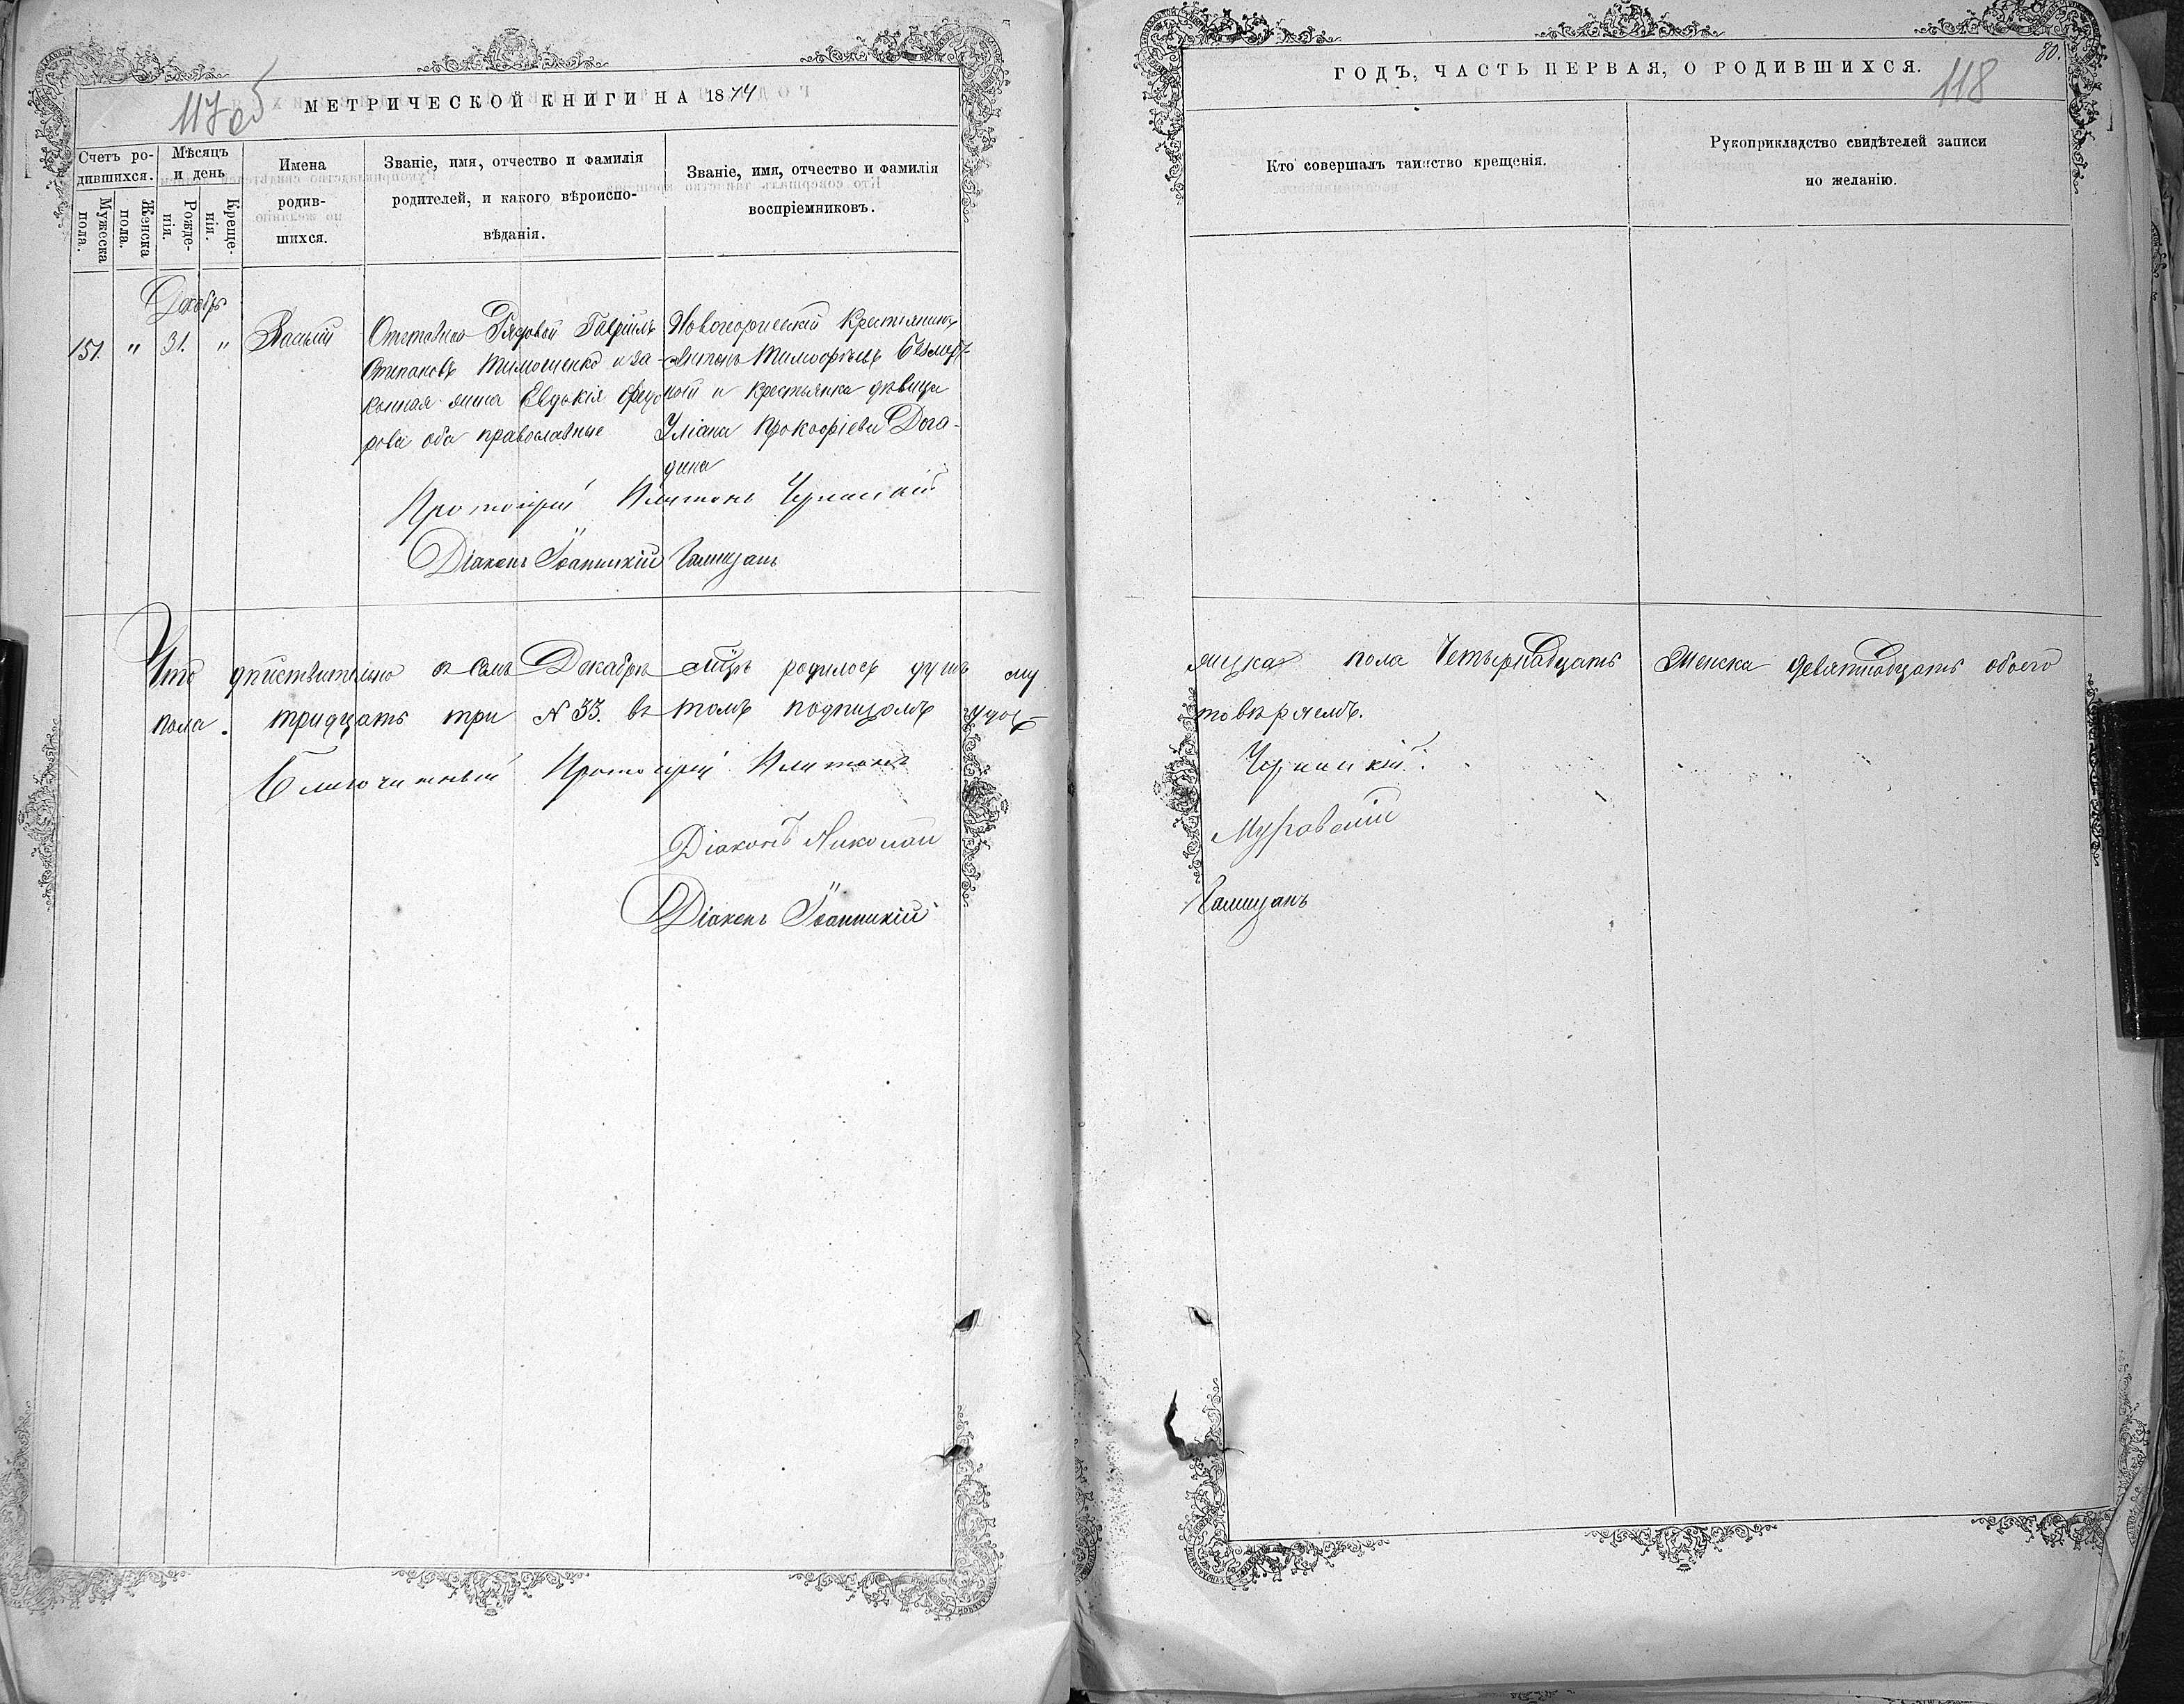 117об
МЕТРИЧЕСКОЙ КНИГИ НА 1874
Счетъ ро-
дившихся.
Мужеска
пола.
Женска
пола.
Мѣсяцъ
и день
Рожде-
нія.
Креще-
нія.
Имена
родив-
шихся.
Званіе, имя, отчество и фамилія
родителей, и какого вѣроиспо-
вѣданія.
Званіе, имя, отчество и фамилія
воспріемниковъ.
Декабрь
151. " 31. " Василій
Отставной Рядовой Гавріилъ
Степановъ Тимошенко и за-
конная жена Евдокія Федо
рова оба православные
Новогеоргиевскій Крестьянинъ
Антонъ Тимофѣевъ
и крестьянка дѣвица
Уліана Прокофіева Дога-
дина
Протоіерей Платонъ
Діаконъ Іоанникій
Что дѣйствительно въ семъ Декабрѣ мцѣ родилось душъ му
пола. тридцать три N 33. въ томъ подписомъ удос-
Благочинный Протоіерей Платонъ
Діаконъ Николай
Діаконъ Іоанникій
80.
118
ГОДЪ, ЧАСТЬ ПЕРВАЯ, О РОДИВШИХСЯ.
Кто совершалъ таинство крещенія.
Рукоприкладство свидѣтелей записи
по желанію.
жеска пола Четырнадцать Женска девятнадцать обоего
товѣряемъ.